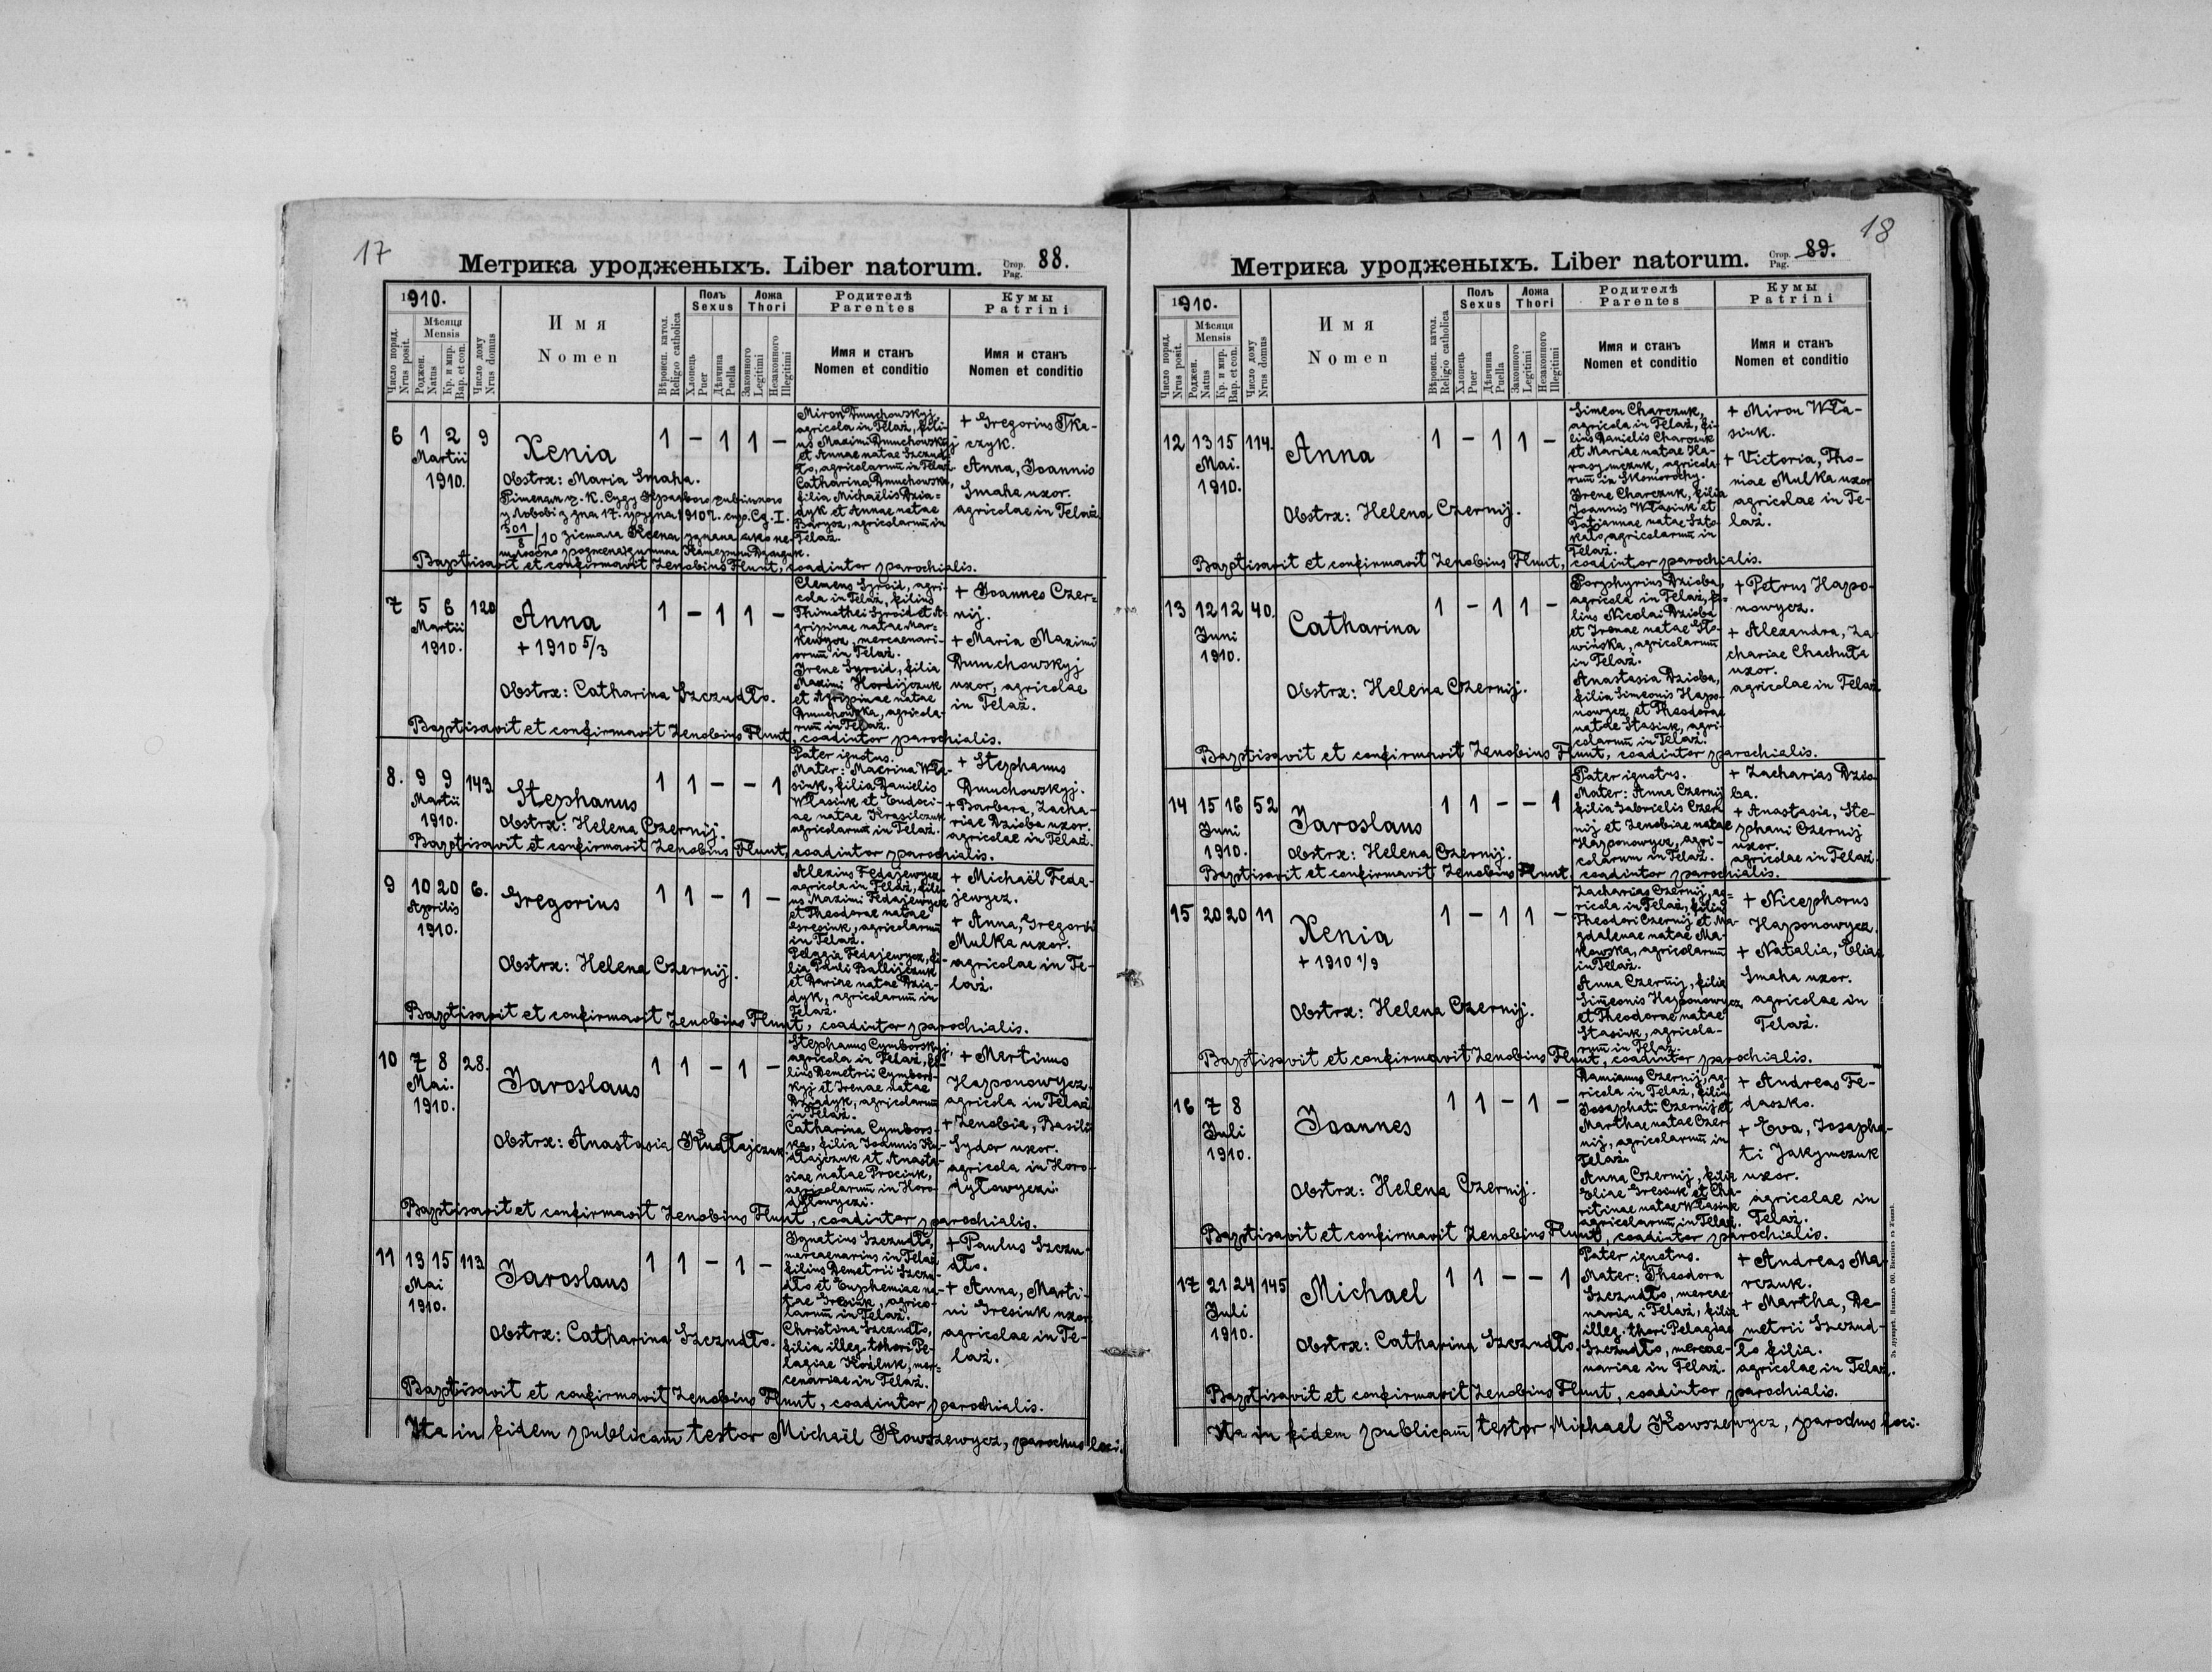 17
Метрика уродженыхъ. Liber natorum.
Стор. Pag. 88.
1910.
Число поряд. Nrus posit.
Мѣсяця Mensis
Роджен. Natus
Кр. и мир. Bap. et con.
Число дому Nrus domus
Имя
Nomen
Вѣроисп. катол. Religio catholica
Полъ Sexus
Хлопець Puer
Дѣвчина Puella
Ложа Thori
Законного Legitimi
Незаконного Illegitimi
Родителѣ
Parentes
Имя и станъ
Nomen et conditio
Кумы
Patrini
Имя и станъ
Nomen et conditio
6 1 2 9 Xenia 1 – 1 1 –
Martii
1910.
Obstrx: Maria Smaha.
Miron Dmuchowskyj,
agricola in Telaż, fili-
us Maximi Dmuchowskyj
et Annae natae Szczud-
ło, agricolarum in Telaż.
Catharina Dmuchowska,
filia Michaëlis Dzia-
dyk et Annae natae
Barysz, agricolarum in
Telaż.
+ Gregorius Tka-
czyk.
Anna, Joannis
Smaha uxor.
agricolae in Telaż.
Baptisavit et confirmavit Zenobius Flunt, coadiutor parochialis.
7 5 6 120 Anna 1 – 1 1 –
Martii
1910.
+ 1910 5/3
Obstrx: Catharina Szczudło.
Clemens Syroid, agri-
cola in Telaż, filius
Thimothei Syroid et A-
gripinae natae Mar-
kewycz, mercenari-
orum in Telaż.
Irene Syroid, filia
Maximi Hordijczuk
et Agripinae natae
Dmuchowska, agricola-
rum in Telaż.
+ Joannes Czer-
nij.
+ Maria Maximi
Dmuchowskyj
uxor, agricolae
in Telaż.
Baptisavit et confirmavit Zenobius Flunt, coadiutor parochialis.
8. 9 9 143 Stephanus 1 1 – – 1
Martii
1910.
Obstrx: Helena Czernij.
Pater ignotus.
Mater: Macrina Wła-
siuk, filia Danielis
Własiuk et Eudoci-
ae natae Krasilczuk
agricolarum in Telaż.
+ Stephanus
Dmuchowskyj.
+ Barbara, Zacha-
riae Dzioba uxor.
agricolae in Telaż.
Baptisavit et confirmavit Zenobius Flunt, coadiutor parochialis.
9 10 20 6. Gregorius 1 1 – 1 –
Aprilis
1910.
Obstrx: Helena Czernij.
Alexius Fedajewycz
agricola in Telaż, fili-
us Maximi Fedajewycz
et Theodorae natae
Gresiuk, agricolarum
in Telaż.
Pelagia Fedajewycz, fi-
lia Pauli Bałlijczuk
et Dariae natae Dzia-
dyk, agricolarum in
Telaż.
+ Michaël Feda-
jewycz.
+ Anna, Gregorii
Mulka uxor.
agricolae in Te-
laż.
Baptisavit et confirmavit Zenobius Flunt, coadiutor parochialis.
10 7 8 28. Jaroslaus 1 1 – 1 –
Mai.
1910.
Obstrx: Anastasia Kudłajczuk.
Stephanus Cymborskyj,
agricola in Telaż, fi-
lius Demetrii Cymbors-
kyj et Irenae natae
Dziadyk, agricolarum
in Telaż.
Catharina Cymbors-
ka, filia Joannis Ku-
dłajczuk et Anasta-
siae natae Prociuk,
agricolarum in Horo-
dyłowyczi.
+ Martinus
Haponowycz
agricola in Telaż
+ Zenobia, Basilii
Sydor uxor.
agricola in Horo-
dyłowyczi.
Baptisavit et confirmavit Zenobius Flunt, coadiutor parochialis.
11 13 15 113 Jaroslaus 1 1 – 1 –
Mai
1910.
Obstrx: Catharina Szczudło.
Ignatius Szczudło,
mercaenarius in Telaż
filius Demetrii Szczu-
dło et Euphemiae na-
tae Gresiuk, agrico-
larum in Telaż.
Christina Szczudło,
filia illeg. thori Pe-
lagiae Koźluk, mer-
cenariae in Telaż.
+ Paulus Szczu-
dło.
+ Anna, Marti-
ni Gresiuk uxor
agricolae in Te-
laż.
Baptisavit et confirmavit Zenobius Flunt, coadiutor parochialis.
Ita in fidem publicam testor Michaël Kowszewycz, parochus loci.
18
Метрика уродженыхъ. Liber natorum.
Стор. Pag. 89.
1910.
Число поряд. Nrus posit.
Мѣсяця Mensis
Роджен. Natus
Кр. и мир. Bap. et con.
Число дому Nrus domus
Имя
Nomen
Вѣроисп. катол. Religio catholica
Полъ Sexus
Хлопець Puer
Дѣвчина Puella
Ложа Thori
Законного Legitimi
Незаконного Illegitimi
Родителѣ
Parentes
Имя и станъ
Nomen et conditio
Кумы
Patrini
Имя и станъ
Nomen et conditio
12 13 15 114. Anna 1 – 1 1 –
Mai.
1910.
Obstrx: Helena Czernij.
Simeon Charczuk,
agricola in Telaż, fi-
lius Danielis Charczuk
et Mariae natae Ha-
rasymczuk, agricola-
rum in Skomorochy.
Irene Charczuk, filia
Joannis Własiuk et
Tatiannae natae Szto-
kało, agricolarum in
Telaż.
+ Miron Wła-
siuk.
+ Victoria, Tho-
mae Mulka uxor
agricolae in Te-
laż.
Baptisavit et confirmavit Zenobius Flunt, coadiutor parochialis.
13 12 12 40. Catharina 1 – 1 1 –
Juni
1910.
Obstrx: Helena Czernij.
Porphyrius Dzioba,
agricola in Telaż, fi-
lius Nicolai Dzioba
et Irenae natae Sło-
wińska, agricolarum
in Telaż.
Anastasia Dzioba,
filia Simeonis Hapo-
nowycz et Theodorae
natae Stasiuk, agri-
colarum in Telaż.
+ Petrus Hapo-
nowycz.
+ Alexandra, Za-
chariae Chachuła
uxor.
agricolae in Telaż.
Baptisavit et confirmavit Zenobius Flunt, coadiutor parochialis.
14 15 16 52 Jaroslaus 1 1 – – 1
Juni
1910.
Obstrx: Helena Czernij.
Pater ignotus.
Mater: Anna Czernij
filia Gabrielis Czer-
nij et Zenobiae natae
Haponowycz, agri-
colarum in Telaż.
+ Zacharias Dzio-
ba.
+ Anastasia, Ste-
phani Czernij
uxor.
agricolae in Telaż.
Baptisavit et confirmavit Zenobius Flunt, coadiutor parochialis.
15 20 20 11 Xenia 1 – 1 1 –
+ 1910 1/9
Obstrx: Helena Czernij.
Zacharias Czernij, ag-
ricola in Telaż, filius
Theodori Czernij et Ma-
gdalenae natae Ma-
kowska, agricolarum
in Telaż.
Anna Czernij, filia
Simeonis Haponowycz
et Theodorae natae
Stasiuk, agricola-
rum in Telaż.
+ Nicephorus
Haponowycz.
+ Natalia, Eliae
Smaha uxor.
agricolae in
Telaż.
Baptisavit et confirmavit Zenobius Flunt, coadiutor parochialis.
16 7 8 Joannes 1 1 – 1 –
Juli
1910.
Obstrx: Helena Czernij.
Damianus Czernij, ag-
ricola in Telaż, filius
Josaphati Czernij et
Marthae natae Czer-
nij, agricolarum in
Telaż.
Anna Czernij, filia
Eliae Gresiuk et Cha-
ritinae natae Własiuk
agricolarum in Telaż.
+ Andreas Fe-
daszko.
+ Eva, Josapha-
ti Jakymczuk
uxor.
agricolae in
Telaż.
Baptisavit et confirmavit Zenobius Flunt, coadiutor parochialis.
17 21 24 145 Michael 1 1 – – 1
Juli
1910.
Obstrx: Catharina Szczudło.
Pater ignotus.
Mater: Theodora
Szczudło, mercae-
naria i Telaż, filia
illeg. thori Pelagiae
Szczudło, mercae-
nariae in Telaż.
+ Andreas Ma-
rczuk.
+ Martha, De-
metrii Szczud-
ło filia.
agricolae in Telaż.
Baptisavit et confirmavit Zenobius Flunt, coadiutor parochialis.
Ita in fidem publicam testor Michael Kowszewycz, parochus loci.